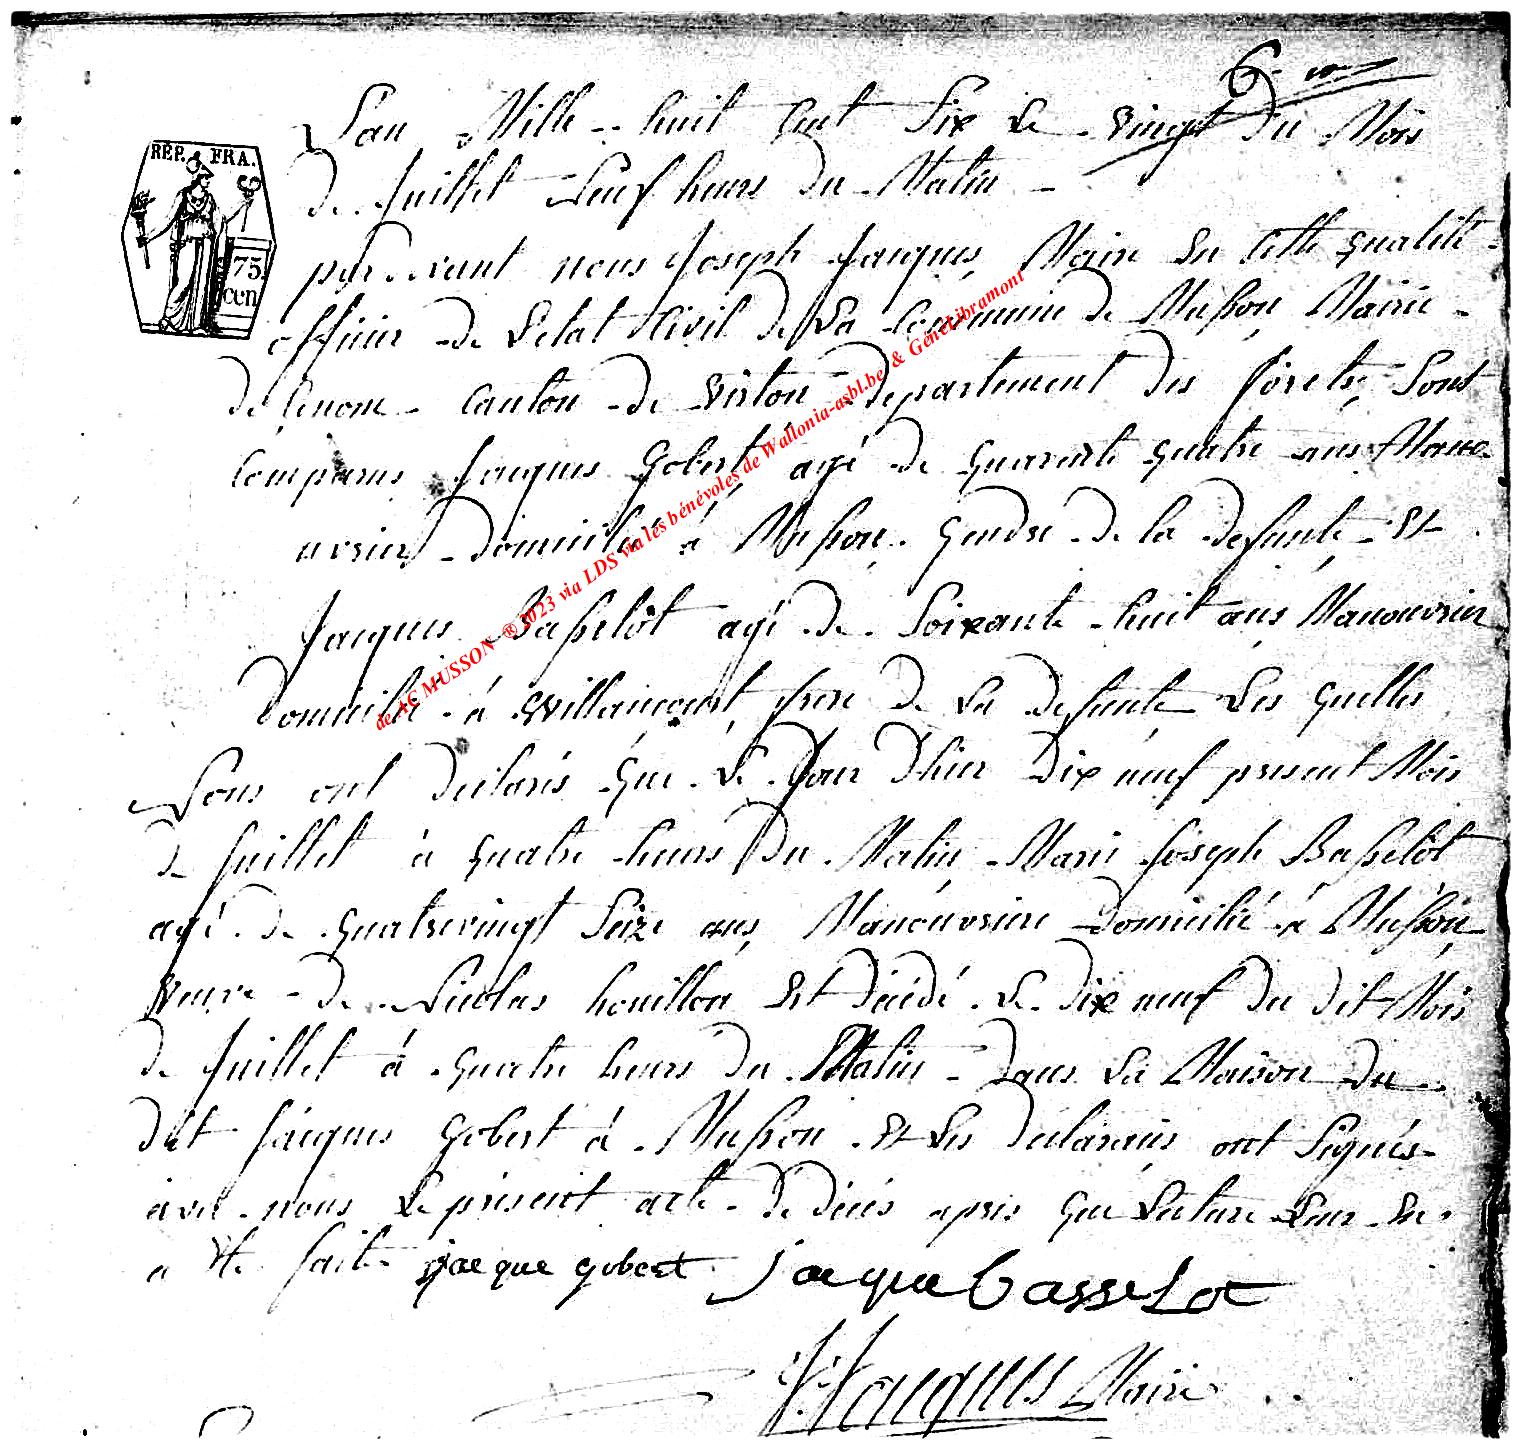 6.
L'an Mille huit Cent Six Le vingt du Mois
REP. FRA.
75
cen
de Juillet Neuf heurs du Matin
par devant nous Joseph Jacques, Maire En Cette qualité
officier de L'etat Civil de La Commune de Musson Mairie
de Ce nom Canton de Virton departement des forets, Sont
Comparus Jacques Gobert, agé de Quarente Quatre ans Mano
uvrier domicilié à Musson Gendre de la defunte Et
Jacques Basselôt agé de Soixante huit ans Manouvrier
domicilié à Willancourt frere de La defunte Les Quelles
Nous ont declarés Que Le Jour D'hier Dix neuf present Mois
de Juillet à Quatre heurs Du Matin Marie Joseph Basselôt
agé de Quatrevingt Seize ans, Manouvriere domicilié à Musson
Veuve de Nicolas houillon Est Décédé Le Dix neuf du dit Mois
de Juillet à Quatre heurs du Matin dans La Maison du
dit Jacques Gobert à Musson Et Les declarans ont Signés
avec nous Le present acte de décés apres Que Lecture Leur En
a Eté faite jacque gobert jacque basselot
J: Jacques Maire
de AC MUSSON ® 2023 via LDS via les bénévoles de Wallonia-asbl.be & GénéLibramont